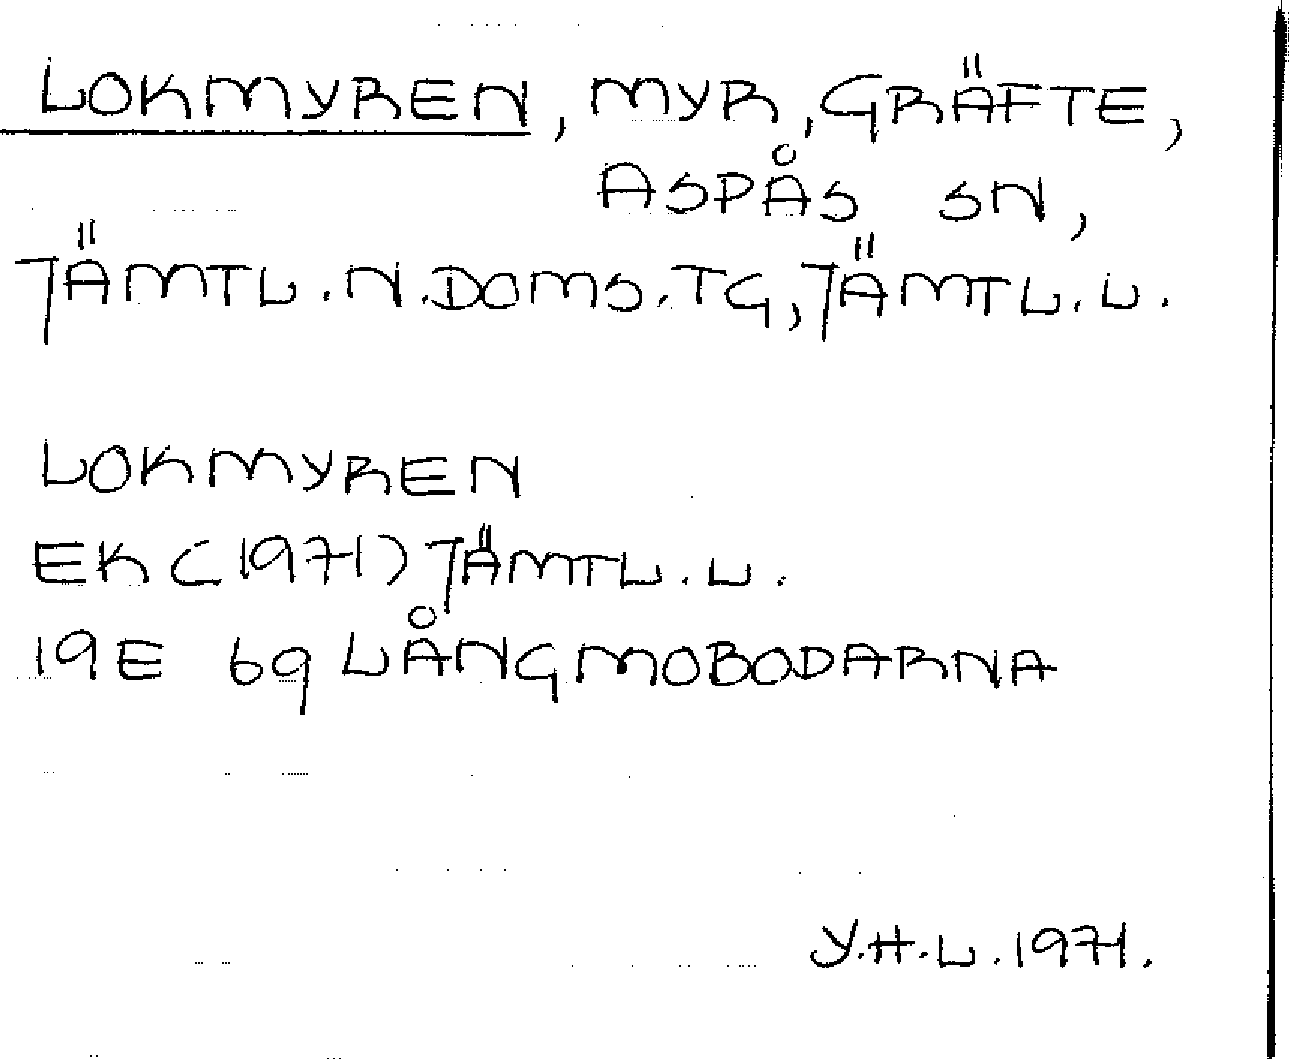 LOKMYREN, MYR, GRÄFTE,
ASPÅS SN,
JÄMTL.N.DOMS.TG, JÄMTL.L.
LOKMYREN
EK (1971) JÄMTL.L.
19E 69 LÅNGMOBODARNA
Y.H.L. 1971.